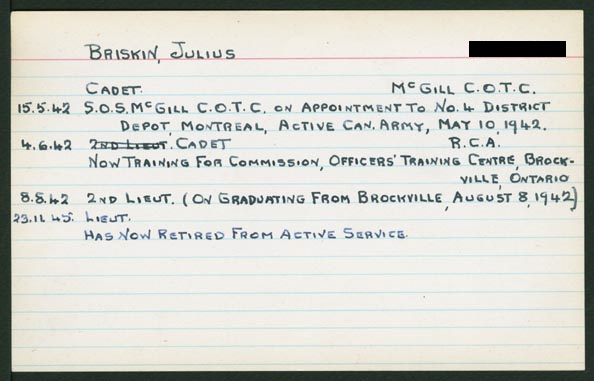 BRISKIN, JULIUS
CADET. McGILL C.O.T.C.
15.5.42 S.O.S. McGILL C.O.T.C. ON APPOINTMENT TO NO. 4 DISTRICT
DEPOT, MONTREAL, ACTIVE CAN. ARMY, MAY 10, 1942.
4.6.42 2ND LIEUT. CADET R.C.A.
NOW TRAINING FOR COMMISSION, OFFICERS' TRAINING CENTRE, BROCK-
VILLE, ONTARIO
8.8.42 2ND LIEUT. (ON GRADUATING FROM BROCKVILLE, AUGUST 8, 1942)
23.11.45. LIEUT.
HAS NOW RETIRED FROM ACTIVE SERVICE.